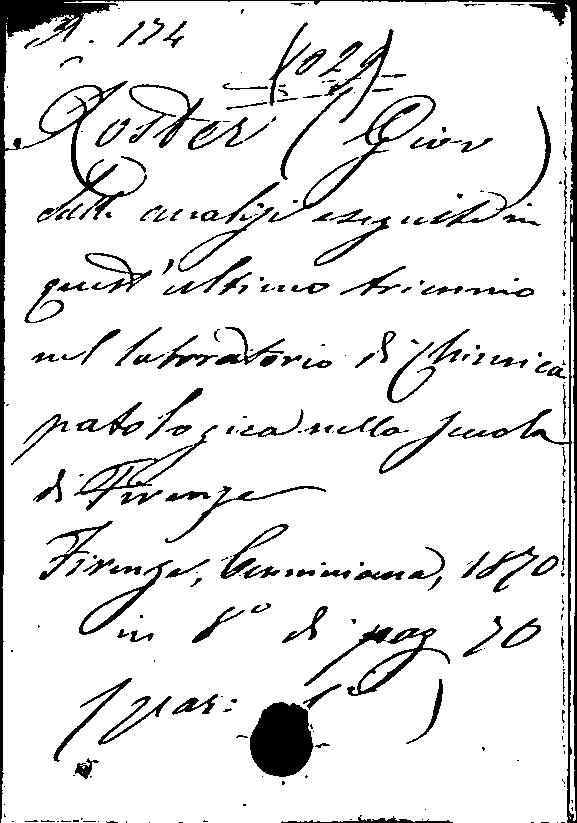 A. 174
(1029)
Roster (Gior)
delle analisi eseguite in
quest'ultimo triennio
nel laboratorio di Chimica
patologica nella scuola
di Firenze
Firenze, Cenniniana, 1870
in 8° di pag 70
(par: 1ª)